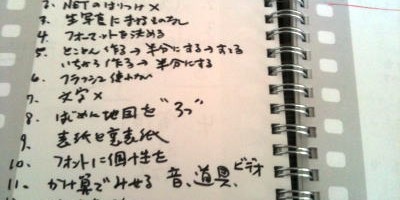 2. NETのはりつけ×
3. 生写真にまけるものなし
4. フォーマットを決める
5. とことん作る→半分にする→すてる
いちから作る→半分にする
6. フラッシュ使わない
7. 文字×
8. はじめに地図を"3つ"
9. 表紙と裏表紙
10. フォントに個性を
11. かけ算でみせる 音、道具、ビデオ